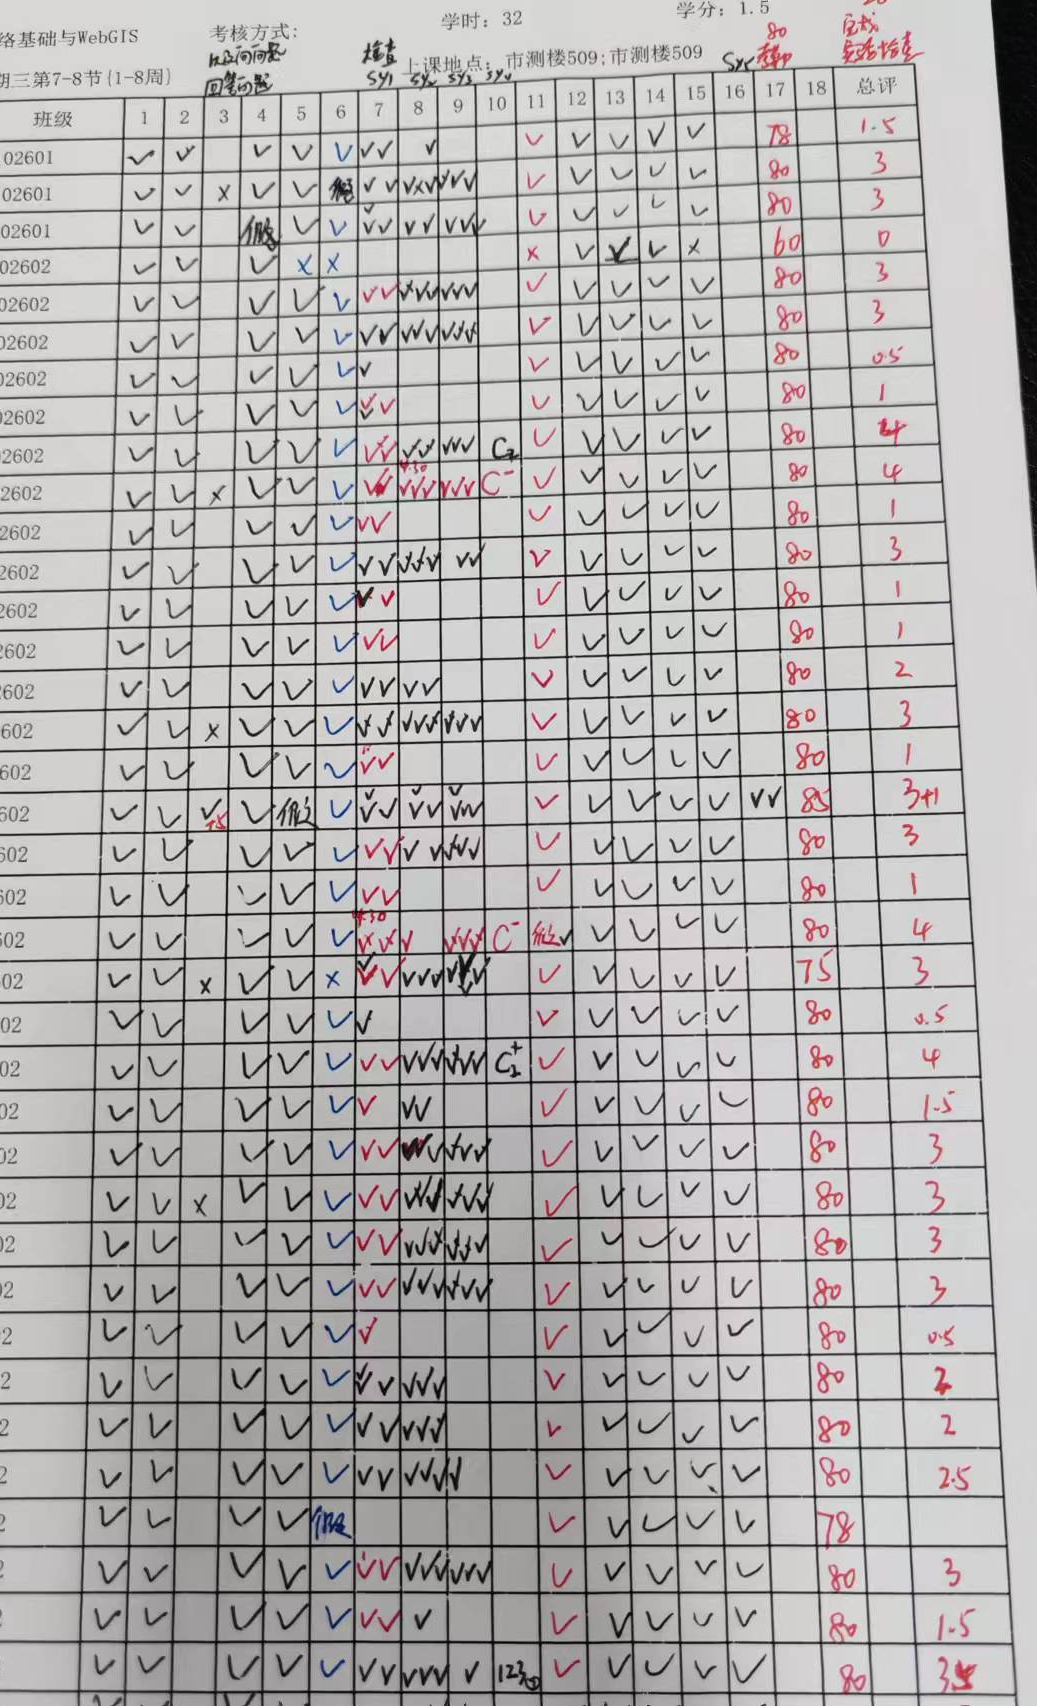 学时：32
学分：1.5
络基础与WebGIS
考核方式：
80
期三第7-8节{1-8周}
回答问题
检查
上课地点：市测楼509；市测楼509
sy1 sy2 sy3 sy4
sy5
班级 1 2 3 4 5 6 7 8 9 10 11 12 13 14 15 16 17 18 总评
02601 ✓ ✓ ✓ ✓ ✓ ✓✓ ✓ ✓ ✓ ✓ ✓ ✓ 78 1.5
02601 ✓ ✓ × ✓ ✓ 假 ✓✓ ✓✓✓ ✓✓✓ ✓ ✓ ✓ ✓ ✓ 80 3
02601 ✓ ✓ 假 ✓ ✓ ✓✓ ✓✓ ✓✓✓ ✓ ✓ ✓ ✓ ✓ 80 3
02602 ✓ ✓ ✓ × × × ✓ ✓ ✓ × 60 0
02602 ✓ ✓ ✓ ✓ ✓ ✓✓ ✓✓✓ ✓✓✓ ✓ ✓ ✓ ✓ ✓ 80 3
02602 ✓ ✓ ✓ ✓ ✓ ✓✓ ✓✓✓ ✓✓✓ ✓ ✓ ✓ ✓ ✓ 80 3
02602 ✓ ✓ ✓ ✓ ✓ ✓ ✓ ✓ ✓ ✓ ✓ 80 0.5
02602 ✓ ✓ ✓ ✓ ✓ ✓✓ ✓ ✓ ✓ ✓ ✓ 80 1
2602 ✓ ✓ ✓ ✓ ✓ ✓✓ ✓✓ ✓✓✓ C ✓ ✓ ✓ ✓ ✓ 80 4
2602 ✓ ✓ × ✓ ✓ ✓ ✓ 4.30 ✓✓✓ ✓✓✓ C- ✓ ✓ ✓ ✓ ✓ 80 4
2602 ✓ ✓ ✓ ✓ ✓ ✓✓ ✓ ✓ ✓ ✓ ✓ 80 1
2602 ✓ ✓ ✓ ✓ ✓ ✓✓ ✓✓✓ ✓✓ ✓ ✓ ✓ ✓ ✓ 80 3
2602 ✓ ✓ ✓ ✓ ✓ ✓✓ ✓ ✓ ✓ ✓ ✓ 80 1
2602 ✓ ✓ ✓ ✓ ✓ ✓✓ ✓ ✓ ✓ ✓ ✓ 80 1
602 ✓ ✓ ✓ ✓ ✓ ✓✓ ✓✓ ✓ ✓ ✓ ✓ ✓ 80 2
602 ✓ ✓ × ✓ ✓ ✓ ✓✓ ✓✓✓ ✓✓✓ ✓ ✓ ✓ ✓ ✓ 80 3
602 ✓ ✓ ✓ ✓ ✓ ✓✓ ✓ ✓ ✓ ✓ ✓ 80 1
602 ✓ ✓ ✓ +5 ✓ 假 ✓ ✓✓ ✓✓ ✓✓ ✓ ✓ ✓ ✓ ✓ ✓✓ 85 3+1
602 ✓ ✓ ✓ ✓ ✓ ✓✓ ✓ ✓ ✓✓✓ ✓ ✓ ✓ ✓ ✓ 80 3
602 ✓ ✓ ✓ ✓ ✓ ✓✓ ✓ ✓ ✓ ✓ ✓ 80 1
602 ✓ ✓ ✓ ✓ ✓ 4.30 ✓✓ ✓ ✓✓✓ C- 假 ✓ ✓ ✓ ✓ ✓ 80 4
602 ✓ ✓ × ✓ ✓ × ✓✓ ✓✓✓ ✓✓✓ ✓ ✓ ✓ ✓ ✓ 75 3
02 ✓ ✓ ✓ ✓ ✓ ✓ ✓ ✓ ✓ ✓ ✓ 80 0.5
02 ✓ ✓ ✓ ✓ ✓ ✓✓ ✓✓✓ ✓✓✓ C2+ ✓ ✓ ✓ ✓ ✓ 80 4
02 ✓ ✓ ✓ ✓ ✓ ✓ ✓✓ ✓ ✓ ✓ ✓ ✓ 80 1.5
02 ✓ ✓ ✓ ✓ ✓ ✓✓ ✓✓ ✓✓✓ ✓ ✓ ✓ ✓ ✓ 80 3
02 ✓ ✓ × ✓ ✓ ✓ ✓✓ ✓✓✓ ✓✓✓ ✓ ✓ ✓ ✓ ✓ 80 3
02 ✓ ✓ ✓ ✓ ✓ ✓✓ ✓✓✓ ✓✓✓ ✓ ✓ ✓ ✓ ✓ 80 3
02 ✓ ✓ ✓ ✓ ✓ ✓✓ ✓✓✓ ✓✓✓ ✓ ✓ ✓ ✓ ✓ 80 3
2 ✓ ✓ ✓ ✓ ✓ ✓ ✓ ✓ ✓ ✓ ✓ 80 0.5
2 ✓ ✓ ✓ ✓ ✓ ✓✓ ✓✓✓ ✓ ✓ ✓ ✓ ✓ 80 2
2 ✓ ✓ ✓ ✓ ✓ ✓✓ ✓✓✓ ✓ ✓ ✓ ✓ ✓ 80 2
2 ✓ ✓ ✓ ✓ ✓ ✓✓ ✓✓✓ ✓ ✓ ✓ ✓ ✓ ✓ 80 2.5
2 ✓ ✓ ✓ ✓ 假 ✓ ✓ ✓ ✓ ✓ 78
2 ✓ ✓ ✓ ✓ ✓ ✓✓ ✓✓✓ ✓✓✓ ✓ ✓ ✓ ✓ ✓ 80 3
2 ✓ ✓ ✓ ✓ ✓ ✓✓ ✓ ✓ ✓ ✓ ✓ ✓ 80 1.5
✓ ✓ ✓ ✓ ✓ ✓✓ ✓✓✓ ✓ 123 ✓ ✓ ✓ ✓ ✓ 80 3.5